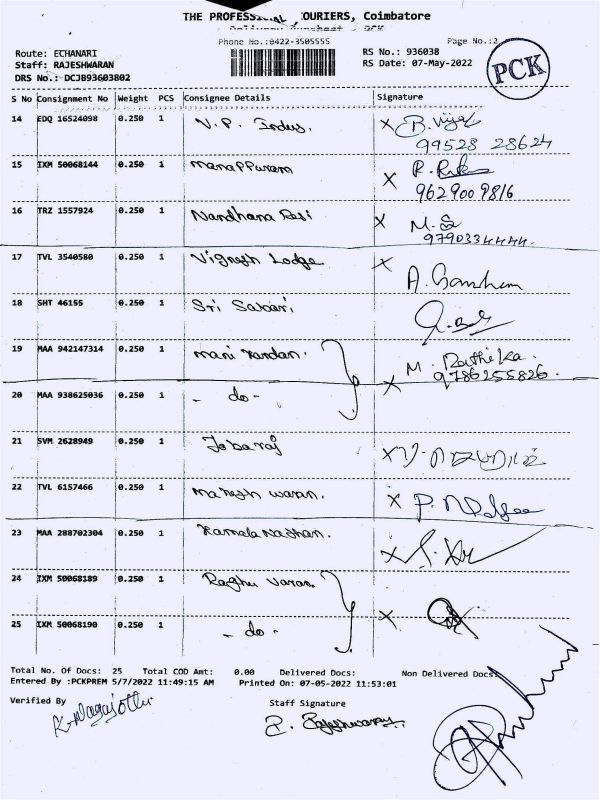 THE PROFESSIONAL COURIERS, Coimbatore
Delivery Runsheet - PCK
Phone No.:0422-3505555 Page No.:2
Route: ECHANARI RS No.: 936038
Staff: RAJESHWARAN RS Date: 07-May-2022
DRS No.: DCJ893603802
PCK
S No Consignment No Weight PCS Consignee Details Signature
14 EDQ 16524098 0.250 1 N.P. Indus. X B. Vijay
99528 28624
15 IXM 50068144 0.250 1 manappuram X R.
9629009816
16 TRZ 1557924 0.250 1 Nandhana Resi X M.
9790334444.
17 TVL 3540580 0.250 1 Vignesh Lodge X A.
18 SHT 46155 0.250 1 Sri Sabari
19 MAA 942147314 0.250 1 mani kandan. M. Rathika.
9786255826.
20 MAA 938625036 0.250 1 - do - X
21 SVM 2628949 0.250 1 Jobaraj X
22 TVL 6157466 0.250 1 mahesh waran. X P.
23 MAA 288702304 0.250 1 Kamala Nathan. X
24 IXM 50068189 0.250 1 Raghu varan. X
25 IXM 50068190 0.250 1 - do -
Total No. Of Docs: 25 Total COD Amt: 0.00 Delivered Docs: Non Delivered Docs:
Entered By :PCKPREM 5/7/2022 11:49:15 AM Printed On: 07-05-2022 11:53:01
Verified By Staff Signature
K. Nagajothi R. Rajeshwaran